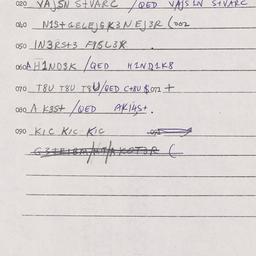 020 VAJSN S+VARC /QED VAJSIN S+VARC
040 N1S+GELEJGK3NEJ3R (002
050 IN3RS+3 F1GL3R
060A H1ND3K /QED H1ND1K8
070 T8U T8U T8U/QED C+8U $072 +
080 A K3S+ /QED AK14S+.
090 KIC KIC KIC